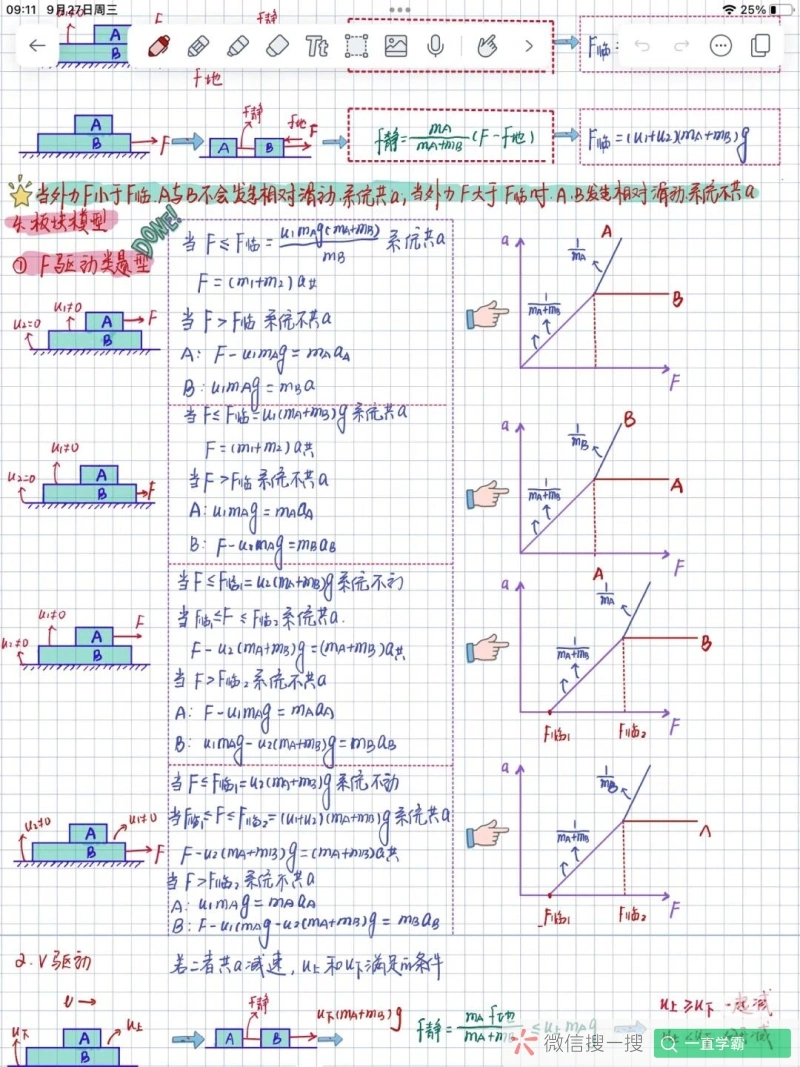 09:11 9月27日周三
25%
Tt
u1≠0
A
F
f静
B
F临=
f地
A
B
F
f静
A
B
f地
F
f静=mA/(mA+mB)(F-f地)
F临=(u1+u2)(mA+mB)g
当外力F小于F临.A与B不会发生相对滑动.系统共a,当外力F大于F临时.A.B发生相对滑动.系统不共a
板块模型
DONE!
① F驱动类是型
u1≠0
u2=0
A
F
B
当F≤F临=u1mAg(mA+mB)/mB 系统共a
F=(m1+m2)a共
当F>F临 系统不共a
A: F-u1mAg=mAaA
B: u1mAg=mBa
a
1/mA
A
1/(mA+mB)
B
F
u1≠0
u2=0
A
B
F
当F≤F临=u1(mA+mB)g系统共a
F=(m1+m2)a共
当F>F临系统不共a
A: u1mAg=mAaA
B: F-u2mAg=mBaB
a
1/mB
B
1/(mA+mB)
A
F
u1≠0
u2≠0
A
F
B
当F≤F临1=u2(mA+mB)g系统不动
当F临1≤F≤F临2系统共a.
F-u2(mA+mB)g=(mA+mB)a共
当F>F临2系统不共a
A: F-u1mAg=mAaA
B: u1mAg-u2(mA+mB)g=mBaB
a
A
1/mA
1/(mA+mB)
B
F临1
F临2
F
u2≠0
u1≠0
A
B
F
当F≤F临1=u2(mA+mB)g系统不动
当F临1≤F≤F临2=(u1+u2)(mA+mB)g系统共a
F-u2(mA+mB)g=(mA+mB)a共
当F>F临2系统不共a
A: u1mAg=mAaA
B: F-u1(mAg-u2(mA+mB)g=mBaB
a
1/mB
1/(mA+mB)
A
F临1
F临2
F
2.V驱动
若二者共a减速,u上和u下满足的条件
u下
A
u上
B
f静
A
B
u下(mA+mB)g
f静=mAf地/(mA+mB)≤u上mAg
u上≥u下 一起减
微信搜一搜
一直学霸